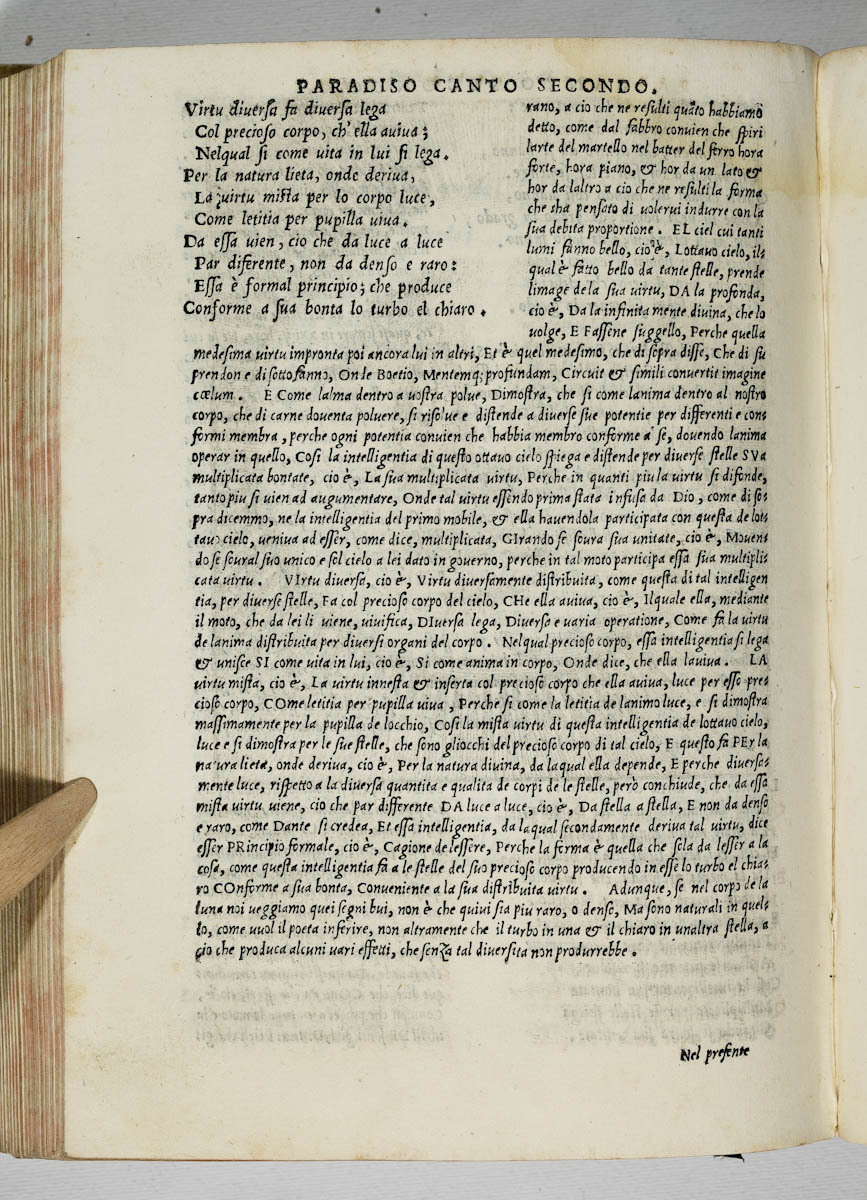 PARADISO CANTO SECONDO.
Virtu diversa fa diversa lega
Col precioso corpo, ch'ella aviva;
Nelqual si come vita in lui si lega.
Per la natura lieta, onde deriva,
La virtu mista per lo corpo luce,
Come letitia per pupilla viva.
Da essa vien, cio che da luce a luce
Par diferente, non da denso e raro:
Essa è formal principio; che produce
Conforme a sua bonta lo turbo el chiaro.
rano, a cio che ne resulti quãto habbiamo
detto, come dal fabbro convien che spiri
larte del martello nel batter del ferro hora
forte, hora piano, & hor da un lato &
hor da laltro a cio che ne resulti la forma
che sha pensato di volervi indurre con la
sua debita proportione. EL ciel cui tanti
lumi fanno bello, cio è, Lottavo cielo, il=
qual è fatto bello da tante stelle, prende
limage de la sua virtu, DA la profonda,
cio è, Da la infinita mente divina, che lo
volge, E FAssene suggello, Perche quella
medesima virtu impronta poi ancora lui in altri, Et è quel medesimo, che di sopra disse, Che di su
prendon e di sotto fanno, Onde Boetio, Mentemq; profundam, Circuit & simili convertit imagine
cœlum. E Come lalma dentro a vostra polve, Dimostra, che si come lanima dentro al nostro
corpo, che di carne doventa polvere, si risolve e distende a diverse sue potentie per differenti e con=
formi membra, perche ogni potentia convien che habbia membro conforme a se, dovendo lanima
operar in quello, Cosi la intelligentia di questo ottavo cielo spiega e distende per diverse stelle SVa
multiplicata bontate, cio è, La sua multiplicata virtu, Perche in quanti piu la virtu si difonde,
tanto piu si vien ad augumentare, Onde tal virtu essendo prima stata infusa da Dio, come di so=
pra dicemmo, ne la intelligentia del primo mobile, & ella havendola participata con questa de lot=
tavo cielo, veniva ad esser, come dice, multiplicata, GIrando se sovra sua unitate, cio è, Moven=
do se sovral suo unico e sol cielo a lei dato in governo, perche in tal moto participa essa sua multipli=
cata virtu. VIrtu diversa, cio è, Virtu diversamente distribuita, come questa di tal intelligen
tia, per diverse stelle, Fa col precioso corpo del cielo, CHe ella aviva, cio è, Ilquale ella, mediante
il moto, che da lei li viene, vivifica, DIversa lega, Diversa e varia operatione, Come fa la virtu
de lanima distribuita per diversi organi del corpo. Nelqual precioso corpo, essa intelligentia si lega
& unisce SI come vita in lui, cio è, Si come anima in corpo, Onde dice, che ella laviva. LA
virtu mista, cio è, La virtu innesta & inserta col precioso corpo che ella aviva, luce per esso pre=
cioso corpo, COme letitia per pupilla viva, Perche si come la letitia de lanimo luce, e si dimostra
massimamente per la pupilla de locchio, Cosi la mista virtu di questa intelligentia de lottavo cielo,
luce e si dimostra per le sue stelle, che sono gliocchi del precioso corpo di tal cielo, E questo fa PEr la
natura lieta, onde deriva, cio è, Per la natura divina, da laqual ella depende, E perche diversa=
mente luce, rispetto a la diversa quantita e qualita de corpi de le stelle, però conchiude, che da essa
mista virtu viene, cio che par differente DA luce a luce, cio è, Da stella a stella, E non da denso
e raro, come Dante si credea, Et essa intelligentia, da laqual secondamente deriva tal virtu, dice
esser PRincipio formale, cio è, Cagione de lessere, Perche la forma è quella che sola da lesser a la
cosa, come questa intelligentia fa a le stelle del suo precioso corpo producendo in esse lo turbo el chia=
ro COnforme a sua bonta, Conveniente a la sua distribuita virtu. Adunque, se nel corpo de la
luna noi veggiamo quei segni bui, non è che quivi sia piu raro, o denso, Ma sono naturali in quel=
lo, come vuol il poeta inferire, non altramente che il turbo in una & il chiaro in unaltra stella, a
cio che produca alcuni vari effetti, che senza tal diversita non produrrebbe.
Nel presente